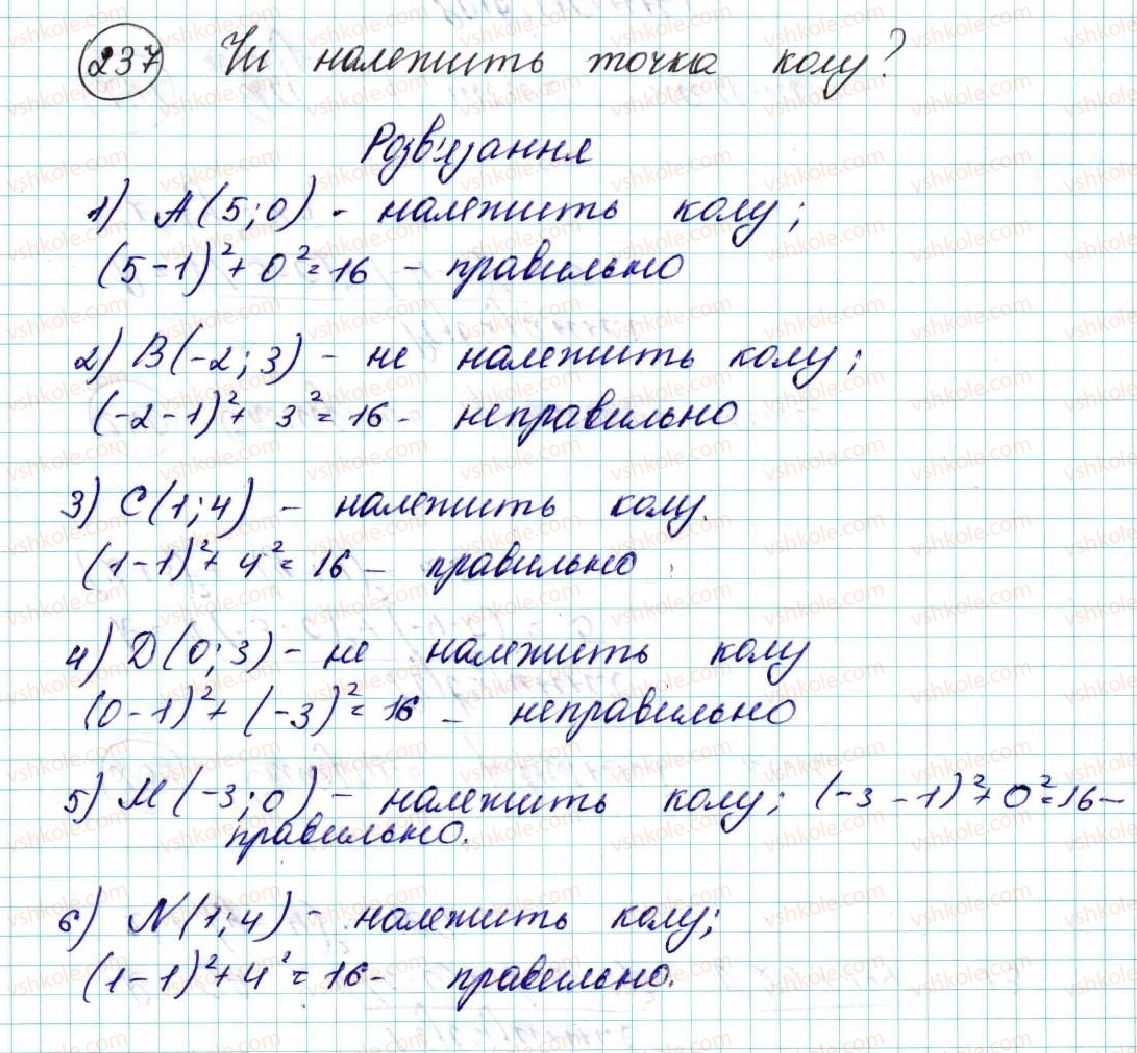 237 Чи належить точка колу?
Розв'язання
1) A(5;0) - належить колу;
(5-1)²+0²=16 - правильно
2) B(-2;3) - не належить колу;
(-2-1)²+3²=16- неправильно
3) C(1;4) - належить колу.
(1-1)²+4²=16- правильно
4) D(0;3)- не належить колу
(0-1)²+(-3)²=16 - неправильно
5) M(-3;0)- належить колу; (-3-1)²+0²=16-
правильно.
6) N(1;4)- належить колу;
(1-1)²+4²=16- правильно.
vshkole.com